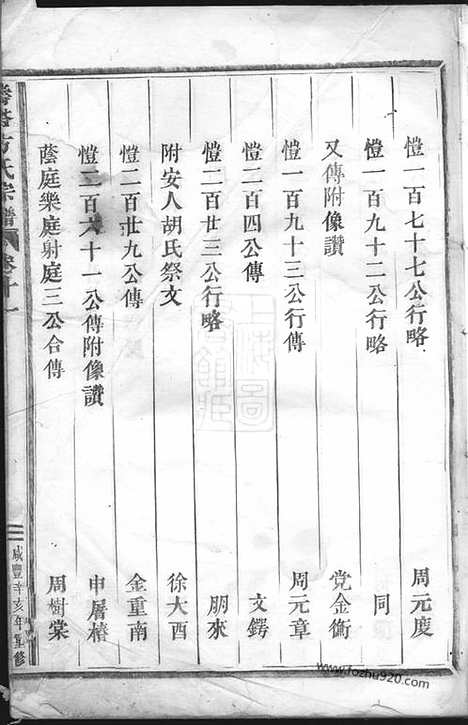 愷一百七十七公行略 周元度
愷一百九十二公行略 同
又傳附像讚 党金衡
愷一百九十三公行傳 周元章
愷二百四公傳 文鍔
愷二百廿三公行略 朋來
附安人胡氏祭文 徐大酉
愷二百廿九公傳 金重南
愷二百六十一公傳附像讚 申屠椿
蔭庭樂庭射庭三公合傳 周樹棠
方氏宗譜 卷十一
咸豐辛亥年重修
www.fozhu920.com